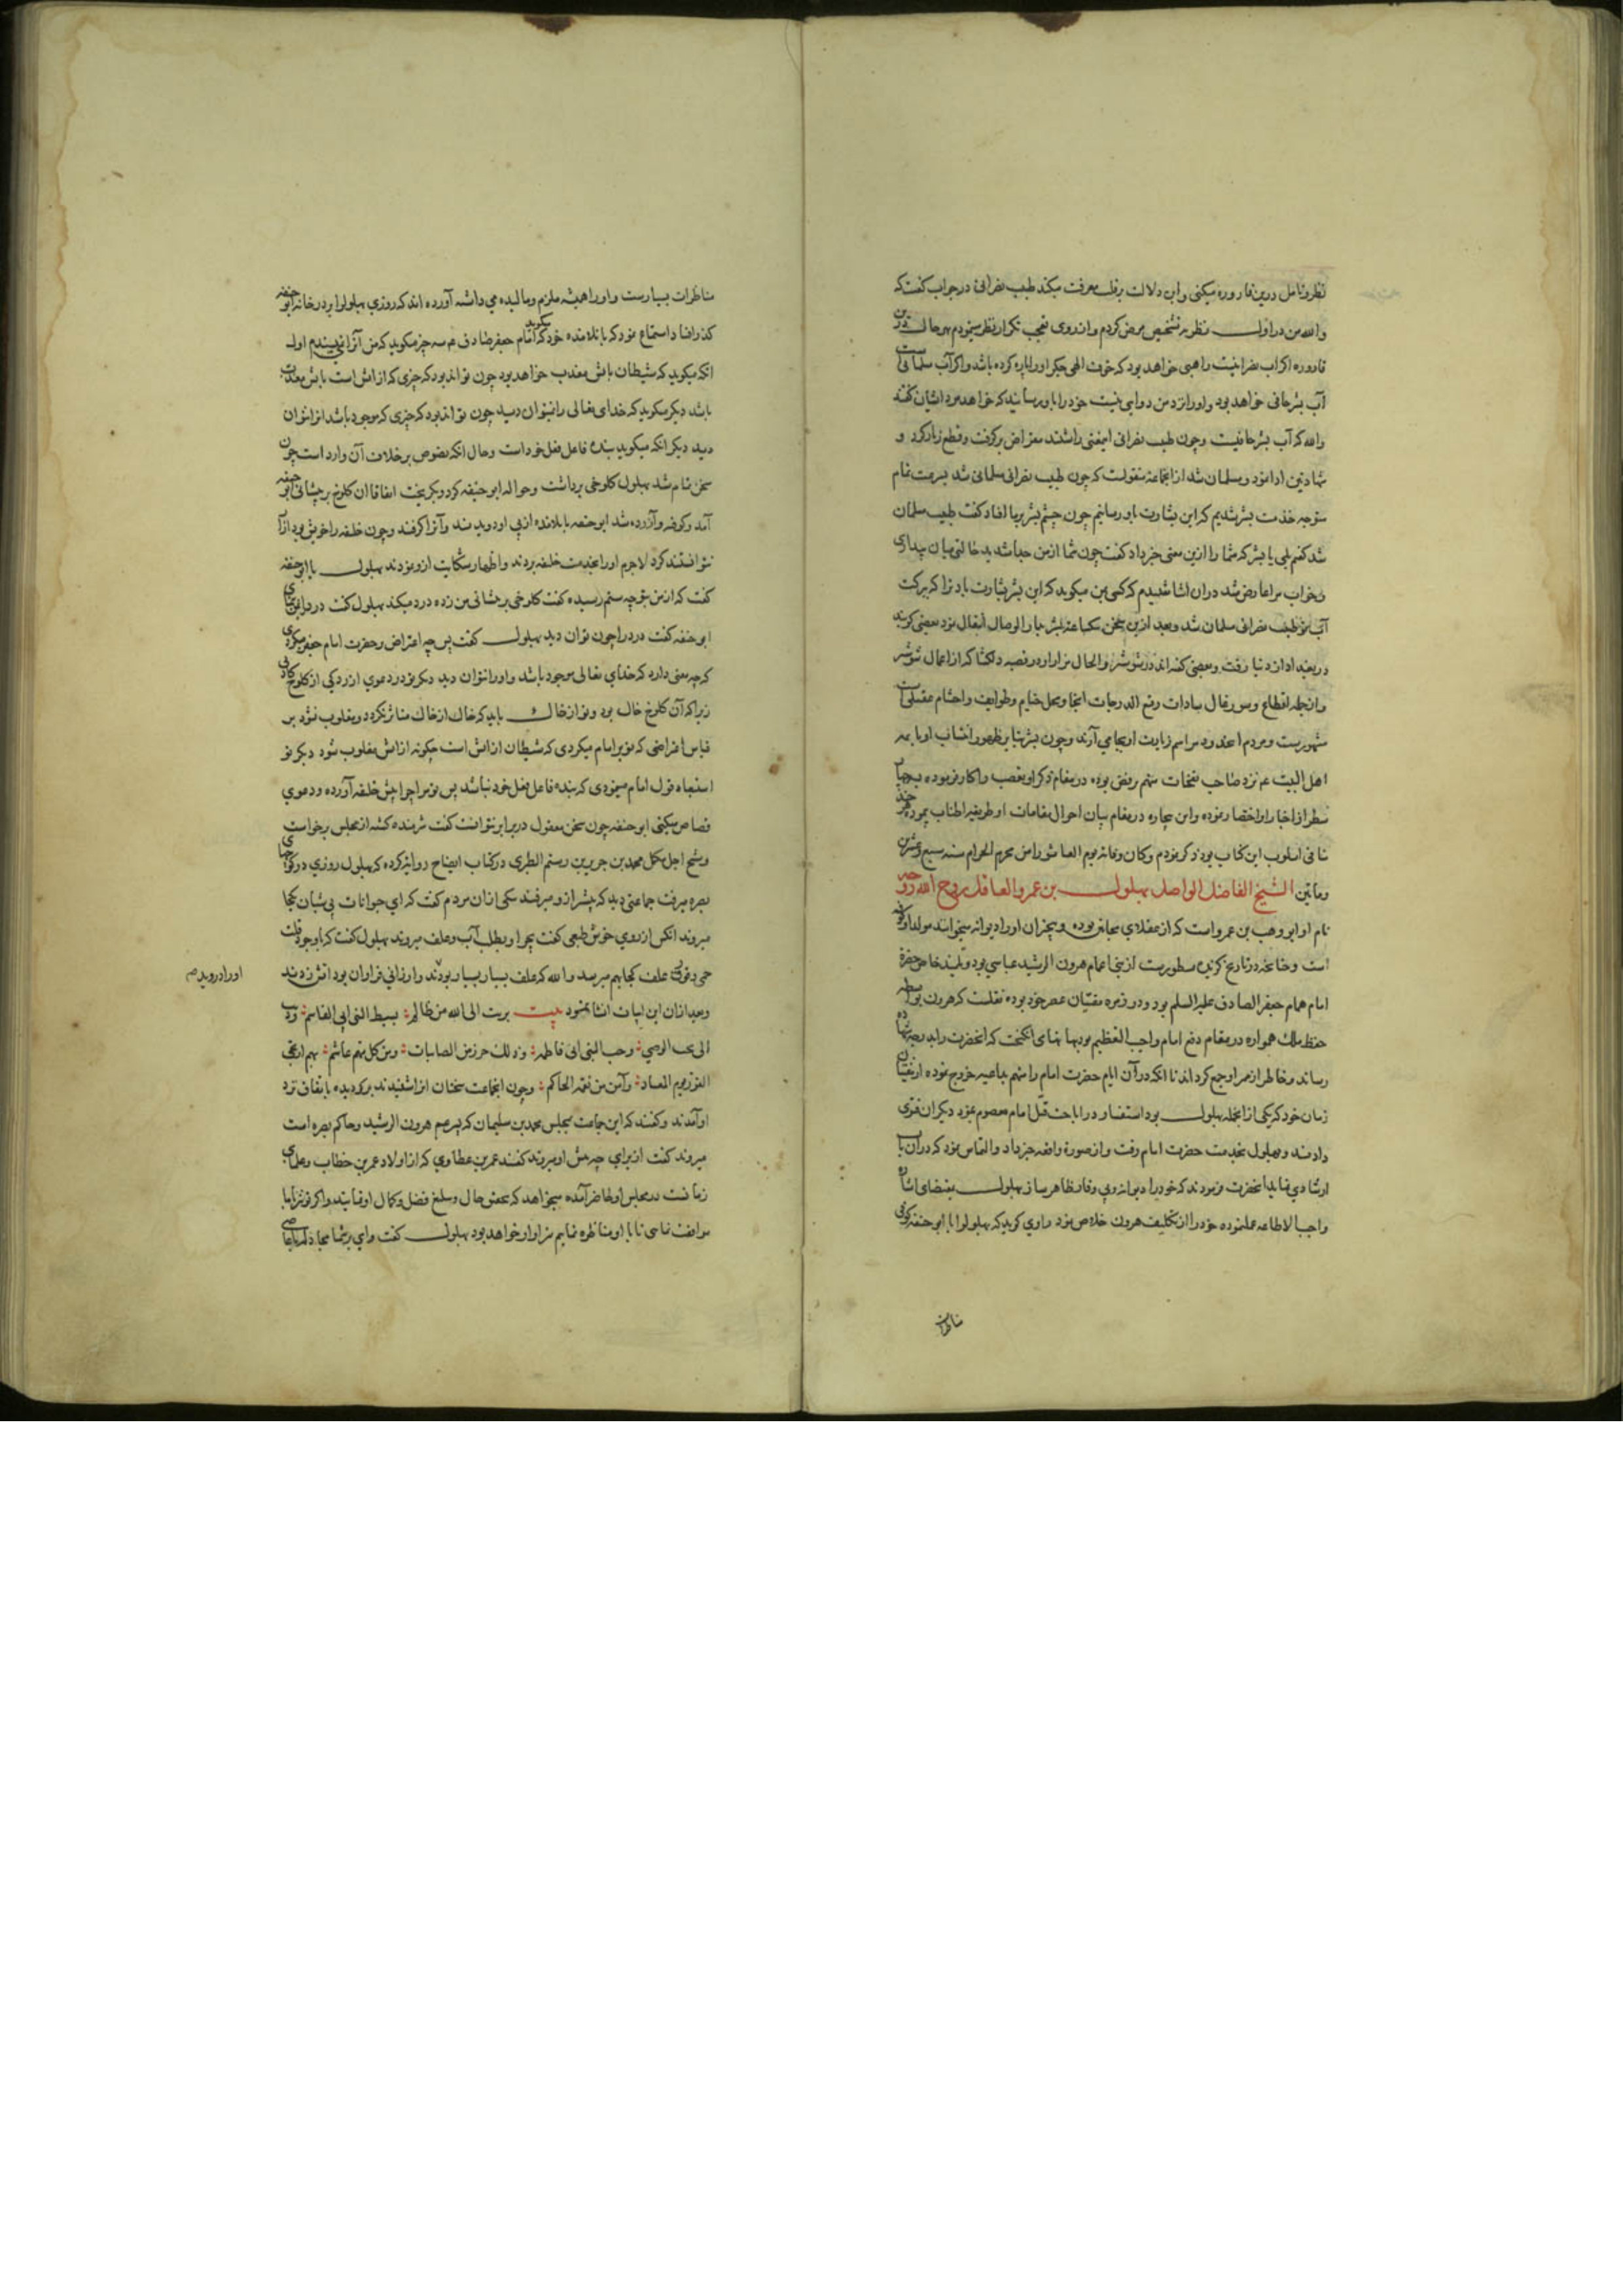 نظر و تامل درین قاروره میکنی و این دلالت بر قلت معرفت میکند طبیب نصرانی در جواب گفت که
والله من در اول نظر به تشخیص مرض کردم و از روی تعجب تکرار نظر مینمودم بهر حال درین
قاروره اگر آب نصرانیست راهبی خواهد بود که خوف الهی جگر او را پاره کرده باشد و اگر آب مسلمانی است
آب بشر حافی خواهد بود و او را نزد من دوایی نیست خود را باو رسانید که خواهد مرد ایشان گفتند
والله که آب بشر حافیست و چون طبیب نصرانی این معنی را شنید مقراض برگرفت و قطع زنار کرد و
شهادتین ادا نمود و مسلمان شد از آنجماعه منقولست که چون طبیب نصرانی مسلمان شد بسرعت تمام
متوجه خدمت بشر شدیم که این بشارت باو رسانیم چون چشم بشر بر ما افتاد گفت طبیب مسلمان
شد گفتم بلی یا بشر که شما را ازین معنی خبر داد گفت چون شما از من جدا شدید حالتی میان بیداری
و خواب مرا عارض شد در آن اثنا شنیدم که کسی بمن میگوید که ای بشر بشارت باد ترا که ببرکت
آب تو طبیب نصرانی مسلمان شد و بعد ازین سخن بشر بدار الوصال انتقال نمود بعضی گویند
در بغداد از دنیا رفت و بعضی گفته اند در شوشتر والحال مزار او در قصبه دلکشا که از اعمال شوشتر
مشهورست و مردم آنحدود مراسم زیارت او بجا می آرند و چون بشر بنا بر ظهور انتساب او بائمه
اهل البیت ع م نزد صاحب نفحات متهم برفض بوده در مقام ذکر او تعصب را کار فرموده
سطر از اخبار او اختصار نموده و این بیچاره در مقام بیان احوال مقامات او طریقه اطناب پیمود هر چند
منافی اسلوب این کتاب بود ذکر نمودم و کان وفاته یوم العاشورا من محرم الحرام سنه سبع و عشرین
و مایتین الشیخ الفاضل الواصل بهلول بن عمرو العاقل روح الله روحه
نام او ابو وهب بن عمرو است که از عقلای مجانین بوده و بیخبران او را دیوانه میخوانند مولد او کوفه
است و چنانچه در تاریخ گزیده مسطورست از بنی اعمام هرون الرشید عباسی بود و تلمیذ خاص حضرة
امام همام جعفر الصادق علیه السلم بود و در زمره مفتیان عصر خود بوده نقلست که هرون بواسطه
حفظ ملک همواره در مقام دفع امام واجب التعظیم بود بهانهای انگیخت که آنحضرت را بدرجه شهادت
رساند و خاطر از ممر او جمع کرداند تا آنکه در آن ایام حضرت امام را متهم بداعیه خروج نموده از مفتیان
زمان خود که یکی از آنجمله بهلول بود استفتاء در اباحت قتل امام معصوم نمود دیگران فتوی
دادند و بهلول بخدمت حضرت امام رفت و از صورة واقعه خبر داد و التماس نمود که در آن باب
ارشادی نماید آنحضرت فرمودند که خود را دیوانه وی وقار ظاهر ساز بهلول بمقتضای اشاره
واجب الاطاعه عمل نموده خود را از تکلیف هرون خلاص نمود راوی گوید که بهلول را با ابو حنیفه کوفی
مناظرات
مناظرات بسیارست و او را همیشه ملزم و مالیده می داشته آورده اند که روزی بهلول را بر در خانه ابو حنیفه
گذر افتاد استماع نمود که با تلامذه خود میگوید که امام جعفر صادق ع م سه چیز میگوید که من آنرا نمی پسندم اول
آنکه میگوید که شیطان باتش معذب خواهد بود چون تواند بود که چیزی که از آتش است باتش معذب
باشد دیگر میگوید که خدای تعالی را نتوان دید چون تواند بود که چیزی که موجود باشد او را نتوان
دید دیگر آنکه میگوید بنده فاعل فعل خود است و حال آنکه نصوص بر خلاف آن وارد است چون
سخن تمام شد بهلول کلوخی برداشت و حواله ابو حنیفه کرد و بگریخت اتفاقا آن کلوخ بر پیشانی ابو حنیفه
آمد و کوفته و آزرده شد ابو حنیفه با تلامذه از پی او دویدند و او را گرفتند و چون خلیفه را خویش بود آزار
نتوانستند کرد لاجرم او را بخدمت خلیفه بردند و اظهار شکایت ازو نمودند بهلول با ابو حنیفه
گفت که از من بتو چه ستم رسیده گفت کلوخی بر پیشانی من زده درد میکند بهلول گفت درد را بمن نمای
ابو حنیفه گفت درد را چون توان دید بهلول گفت پس چه اعتراض بر حضرت امام جعفر میکردی
که چه معنی دارد که خدای تعالی موجود باشد و او را نتوان دید دیگر تو در دعوی آزردگی از کلوخ کاذبی
زیرا که آن کلوخ خاک بود و تو از خاک باید که خاک از خاک متاثر نگردد و مغلوب نشود بر
قیاس اعتراضی که تو بر امام میکردی که شیطان از آتش است چگونه از آتش مغلوب شود دیگر تو
استبعاد قول امام مینمودی که بنده فاعل فعل خود نباشد پس تو مرا چرا پیش خلیفه آورده و دعوی
قصاص میکنی ابو حنیفه چون سخن معقول در برابر نتوانست گفت شرمنده گشته از مجلس برخواست
و شیخ اجل متکلم محمد بن جریر بن رستم الطبری در کتاب ایضاح روایت کرده که بهلول روزی در کوچهای
بصره میرفت جماعتی دید که پیشتر ازو میرفتند بیکی از آن مردم گفت که ای حیوانات بی شبان بکجا
میروند آنکس از روی خوش طبعی گفت بچرا و بطلب آب و علف میروند بهلول گفت که باوجود قلت
علف کجا بهم میرسد والله که علف بسیار بسیار بودند و ارزانی فراوان بود آتش زدند
او را درویدند صح
و بعد از آن این ابیات انشا نمود بیت برئت الی الله من ظالم؛ لسبط النبی ابی القاسم؛ و دنت
الهی بحب الوصی؛ و حب النبی ابی فاطم؛ و ذلک حرز من النائبات؛ و من کل متهم غاشم؛ بهم ارتجی
الفوز یوم المعاد؛ و آمن من نقمة الحاکم؛ و چون آنجماعت سخنان او را شنیدند برگردیده باتفاق نزد
او آمدند و گفتند که این جماعت بمجلس محمد بن سلیمان که پسر عم هرون الرشید و حاکم بصره است
میروند گفت از برای چه پیش او میروند گفتند عمر بن عطاوی که از اولاد عمر بن خطاب و علمای
زمانست در مجلس او حاضر آمده میخواهد که تحقیق حال و مبلغ فضل و کمال او نمایند و اگر تو نیز با ما
موافقت نمائی تا با او مناظره نمایم سزاوار خواهد بود بهلول گفت وای بر شما مجادله با عاصی